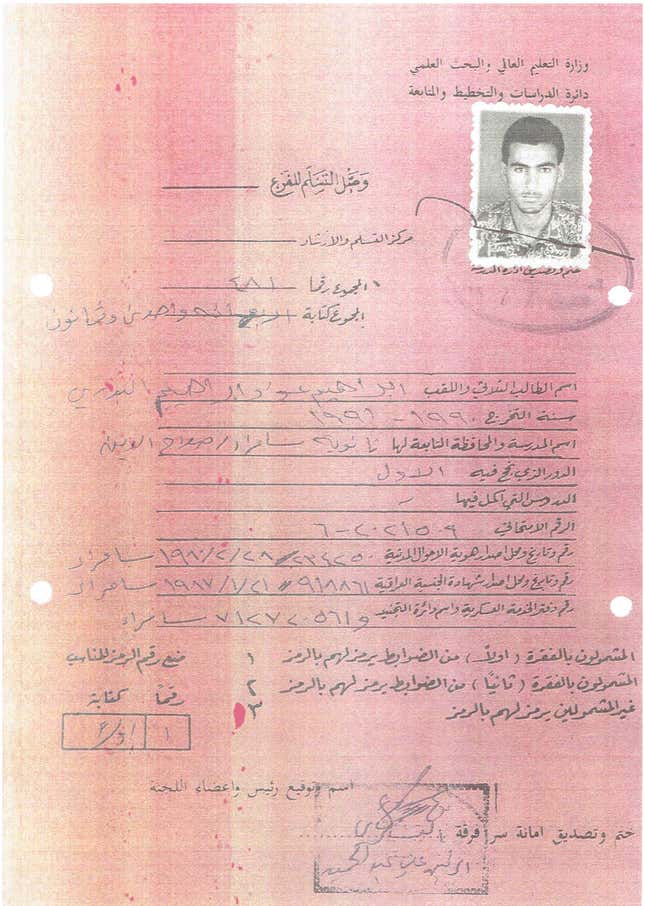 وزارة التعليم العالي والبحث العلمي
دائرة الدراسات والتخطيط والمتابعة
وصل التسلم للفرع
مركز التسلم والأرشاد
ختم وتصديق ادارة المدرسة
المجموع رقما ٤٨١
المجموع كتابة اربعمائه وواحدى وثمانون
اسم الطالب الثلاثي واللقب ابراهيم عواد ابراهيم البدري
سنة التخرج ١٩٩٠ - ١٩٩١
اسم المدرسة والمحافظة التابعة لها ثانوية سامراء / صلاح الدين
الدور الذي نجح فيه الاول
الدروس التي اكمل فيها -
الرقم الامتحاني
رقم وتاريخ ومحل اصدار هوية الاحوال المدنية ٢٣٤٢٥٠ ١٩٨٠/٢/٢٨ سامراء
رقم وتاريخ ومحل اصدار شهادة الجنسية العراقية ١٩٨٧/١/٢١ سامراء
رقم دفتر الخدمة العسكرية واسم دائرة التجنيد سامراء
المشمولون بالفقرة (اولاً) من الضوابط يرمز لهم بالرمز ١ ضع رقم الرمز المناسب
المشمولون بالفقرة (ثانياً) من الضوابط يرمز لهم بالرمز ٢
غير المشمولين يرمز لهم بالرمز ٣ رقماً كتابة
١
اسم وتوقيع رئيس واعضاء اللجنة
ختم وتصديق امانة سر فرقة